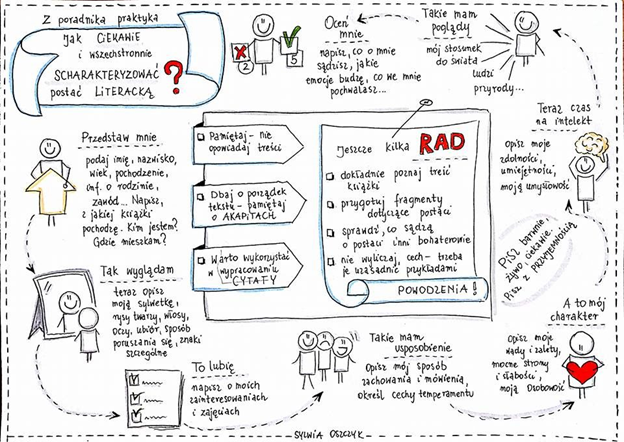 Z poradnika praktyka
JAK CIEKAWIE
i WSZECHSTRONNIE
SCHARAKTERYZOWAĆ
postać LITERACKĄ ?
2
5
Oceń
mnie
napisz, co o mnie
sądzisz, jakie
emocje budzę, co we mnie
pochwalasz...
Takie mam
poglądy
mój stosunek
do świata
ludzi
przyrody...
Teraz czas
na intelekt
Opisz moje
zdolności,
umiejętności,
moją umysłowość
Przedstaw mnie
podaj imię, nazwisko,
wiek, pochodzenie,
inf. o rodzinie,
zawód... Napisz,
z jakiej książki
pochodzę. Kim jestem?
Gdzie mieszkam?
Pamiętaj - nie
opowiadaj treści
Dbaj o porządek
tekstu - pamiętaj
o AKAPITACH
Warto wykorzystać
w wypracowaniu
CYTATY
Jeszcze kilka RAD
dokładnie poznaj treść
książki
przygotuj fragmenty
dotyczące postaci
sprawdź, co sądzą
o postaci inni bohaterowie
nie wyliczaj cech - trzeba
je uzasadnić przykładami
POWODZENIA!
Pisz barwnie,
żywo, ciekawie.
Pisz z przyjemnością
Tak wyglądam
teraz opisz
moją sylwetkę,
rysy twarzy, włosy,
oczy, ubiór, sposób
poruszania się, znaki
szczególne
To lubię
napisz o moich
zainteresowaniach
i zajęciach
Takie mam
usposobienie
Opisz mój sposób
zachowania i mówienia,
określ cechy temperamentu
A to mój
charakter
Opisz moje
wady i zalety,
mocne strony
i słabości,
moją osobowość
SYLWIA OSZCZYK